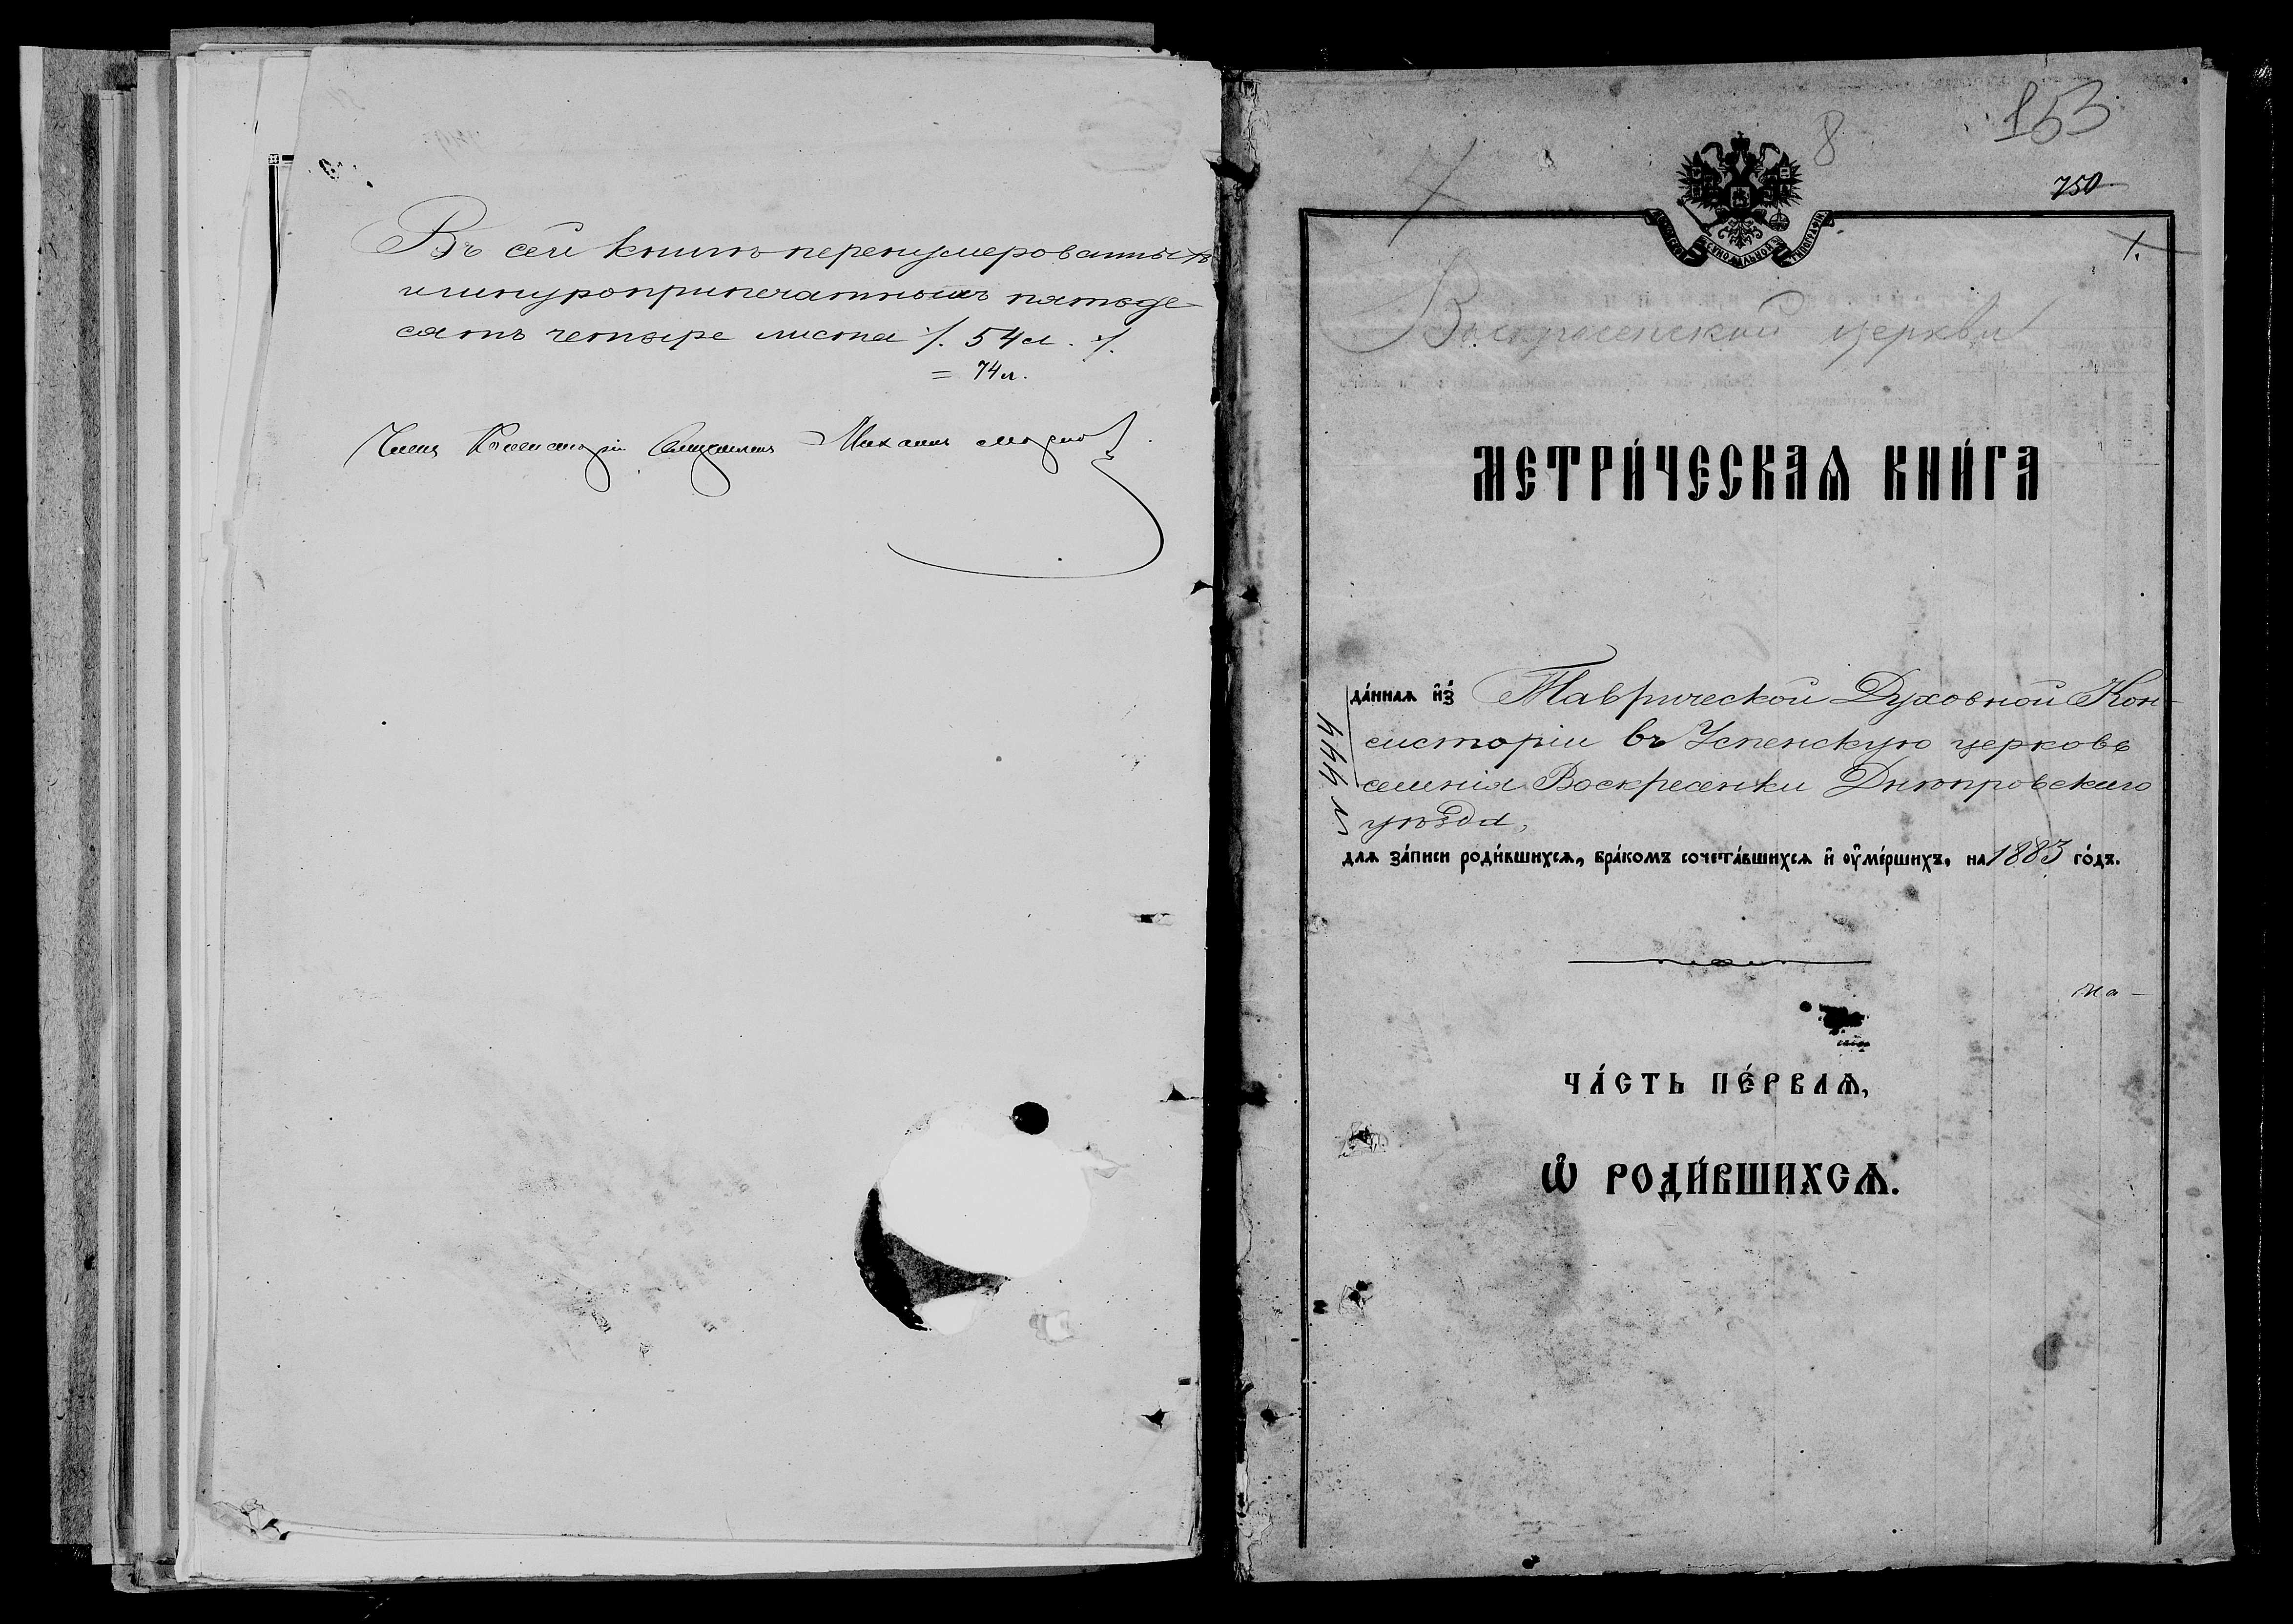 Въ сей книгѣ перенумерованныхъ
и шнуроприпечатанныхъ пятьде-
сятъ четыре листа ./. 54 л. ./.
= 74 л.
Членъ Консисторіи Священникъ Михаилъ
7
8
153
750
МОСКОВСКОЙ СѴНОДАЛЬНОЙ ТИПОГРАФІИ
1.
Воскресенской церкви
МЕТРИ́ЧЕСКАѦ КНИ́ГА
да́нная и҆зъ Таврической Духовной Кон-
систоріи въ Успенскую церковь
селенія Воскресенки Днѣпровскаго
уѣзда,
для за́писи роди́вшихся, бра́комъ сочета́вшихся и҆ оу҆ме́ршихъ, на 1883 го́дъ.
на-
ЧА́СТЬ ПЕ́РВАѦ,
Ѽ РОДИ́ВШИХСѦ.